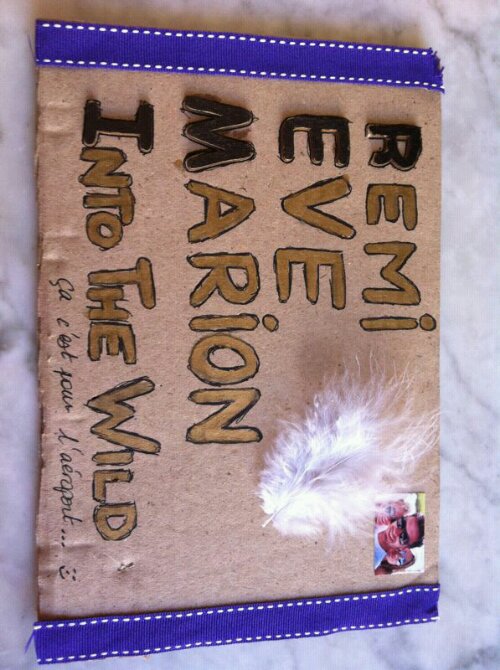 REMi
EVE
MARiON
INTO THE WILD
Ça c'est pour l'aéroport.... :)